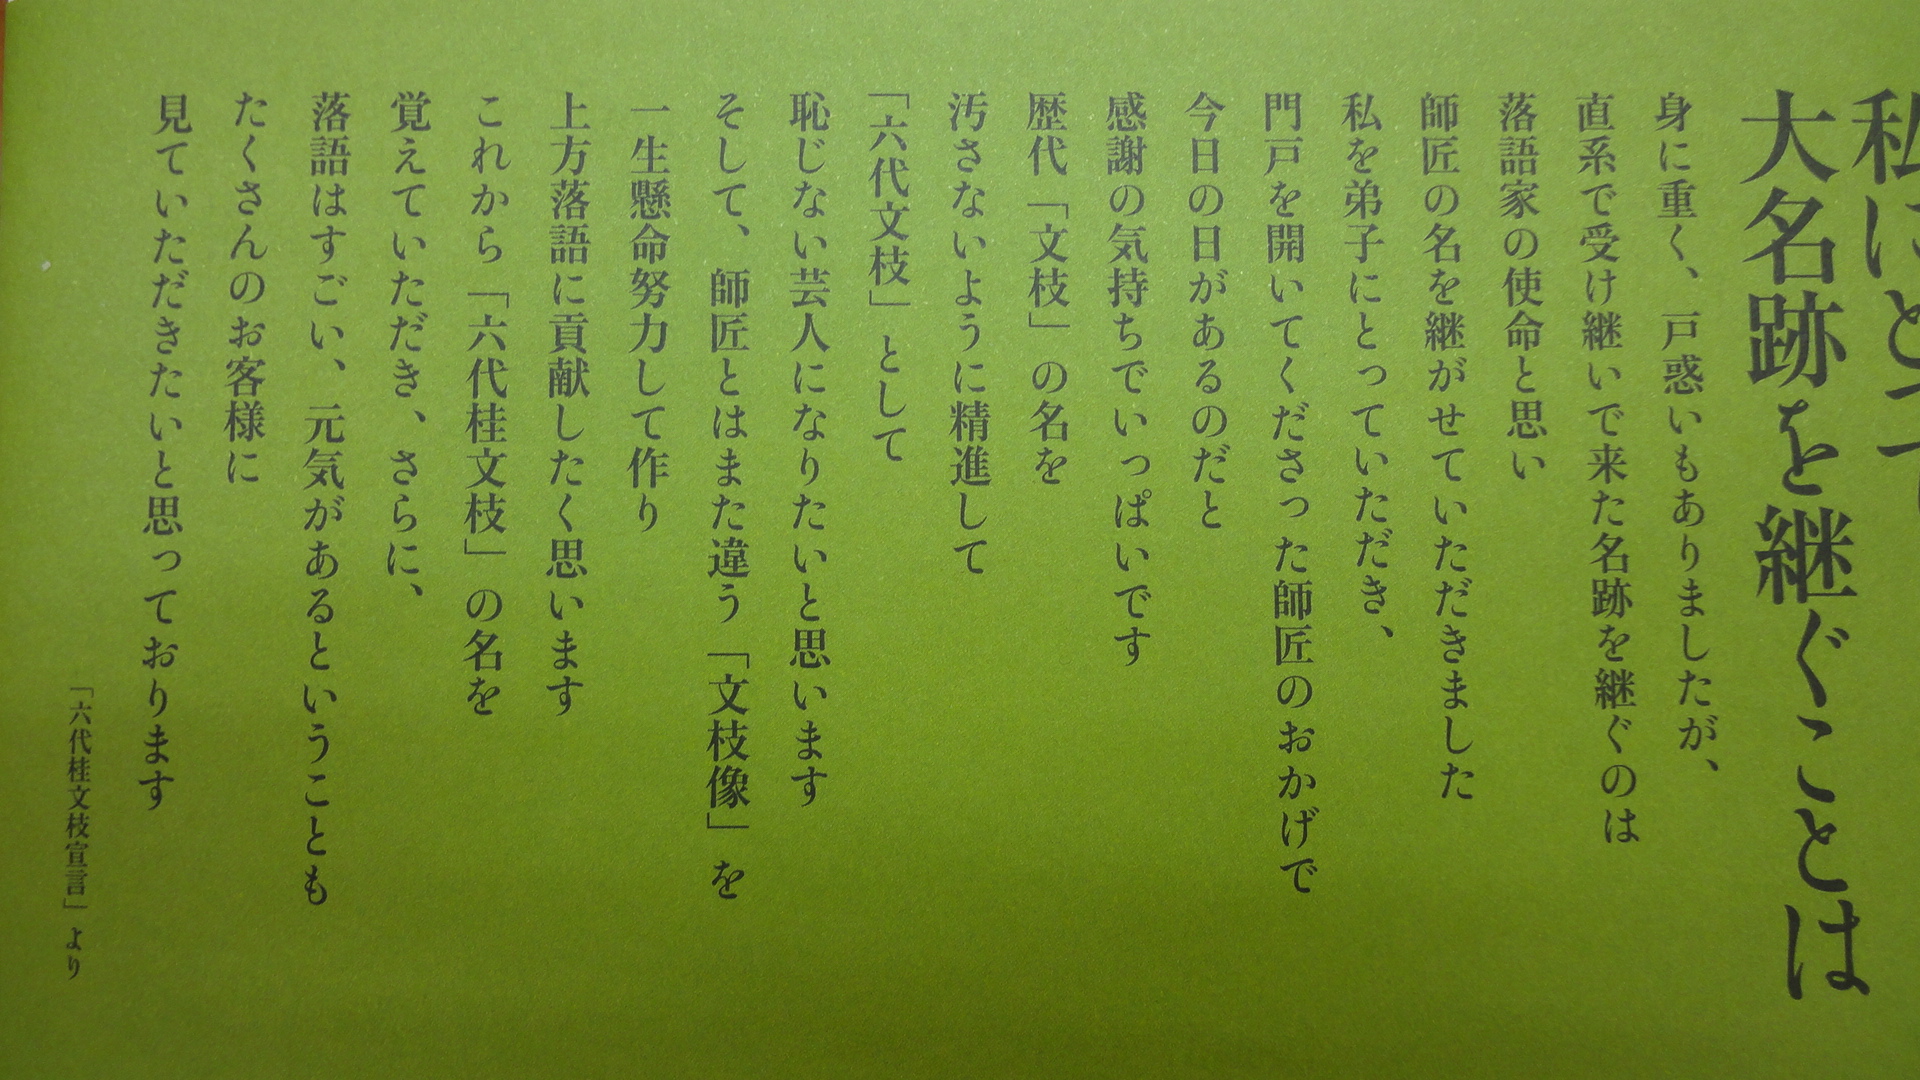 私にとって
大名跡を継ぐことは
身に重く、戸惑いもありましたが、
直系で受け継いで来た名跡を継ぐのは
落語家の使命と思い
師匠の名を継がせていただきました
私を弟子にとっていただき、
門戸を開いてくださった師匠のおかげで
今日の日があるのだと
感謝の気持ちでいっぱいです
歴代「文枝」の名を
汚さないように精進して
「六代文枝」として
恥じない芸人になりたいと思います
そして、師匠とはまた違う「文枝像」を
一生懸命努力して作り
上方落語に貢献したく思います
これから「六代桂文枝」の名を
覚えていただき、さらに、
落語はすごい、元気があるということも
たくさんのお客様に
見ていただきたいと思っております
「六代桂文枝宣言」より